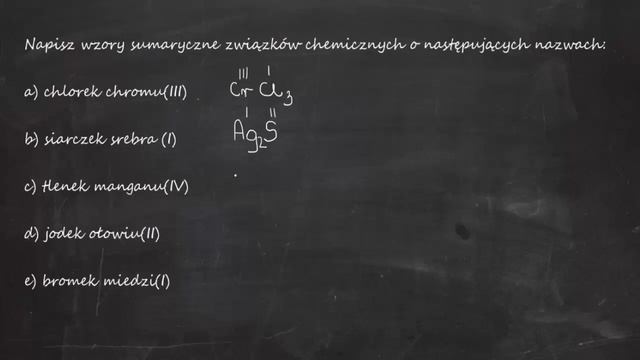 Napisz wzory sumaryczne związków chemicznych o następujących nazwach:
III I
a) chlorek chromu(III) CrCl3
I II
b) siarczek srebra (I) Ag2S
c) tlenek manganu(IV)
d) jodek ołowiu(II)
e) bromek miedzi(I)